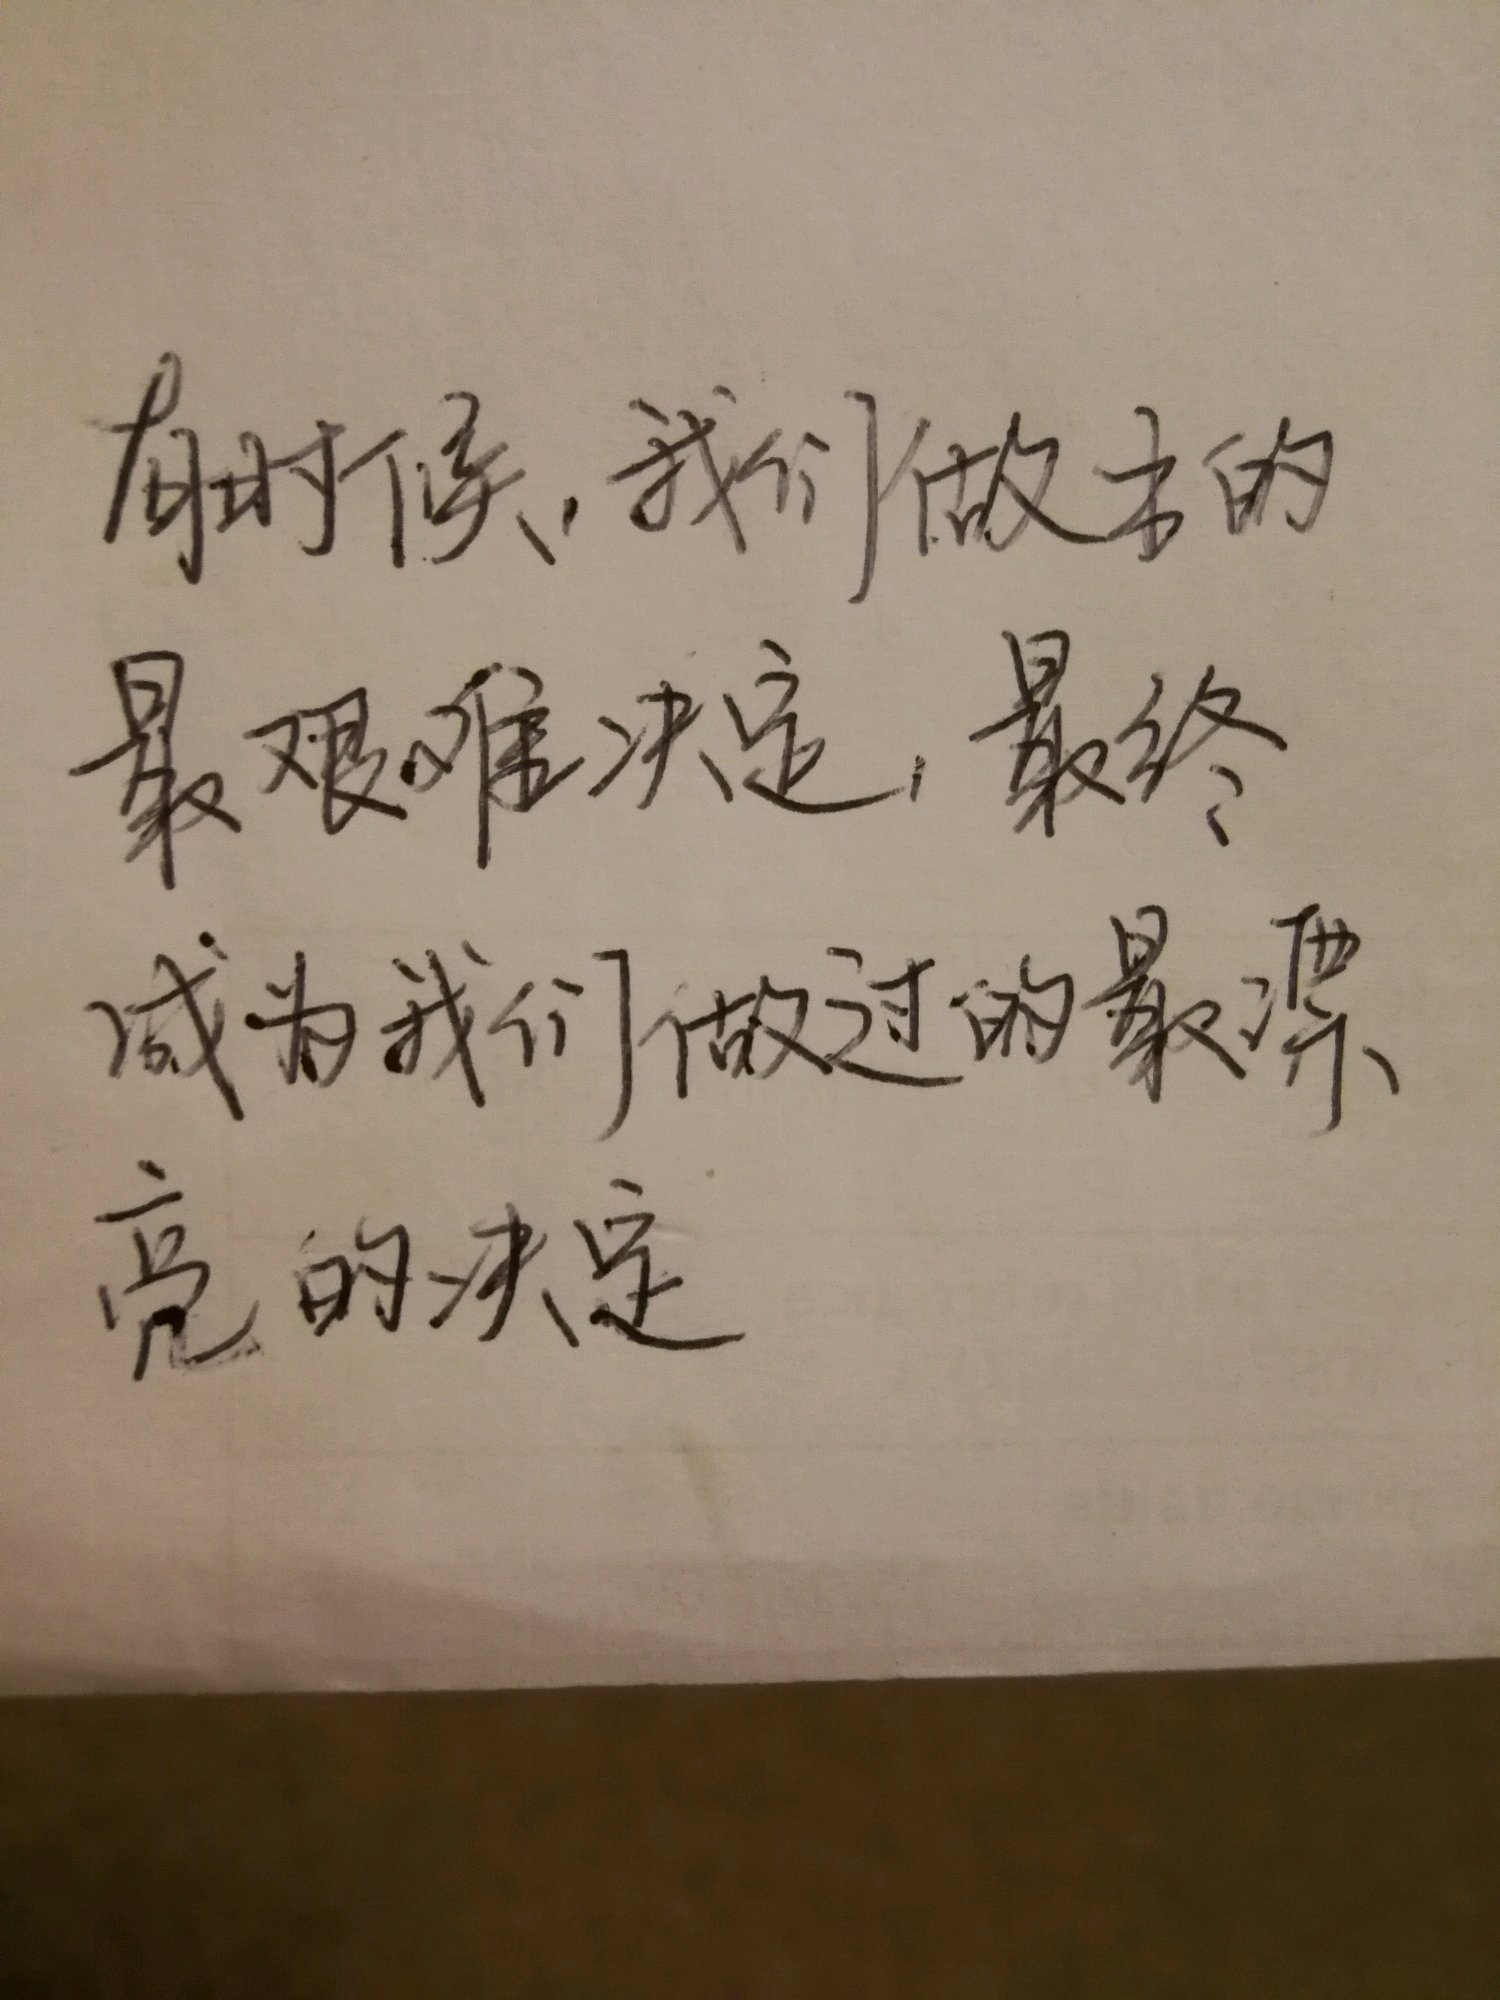 有时候，我们做出的
最艰难决定，最终
成为我们做过的最漂
亮的决定